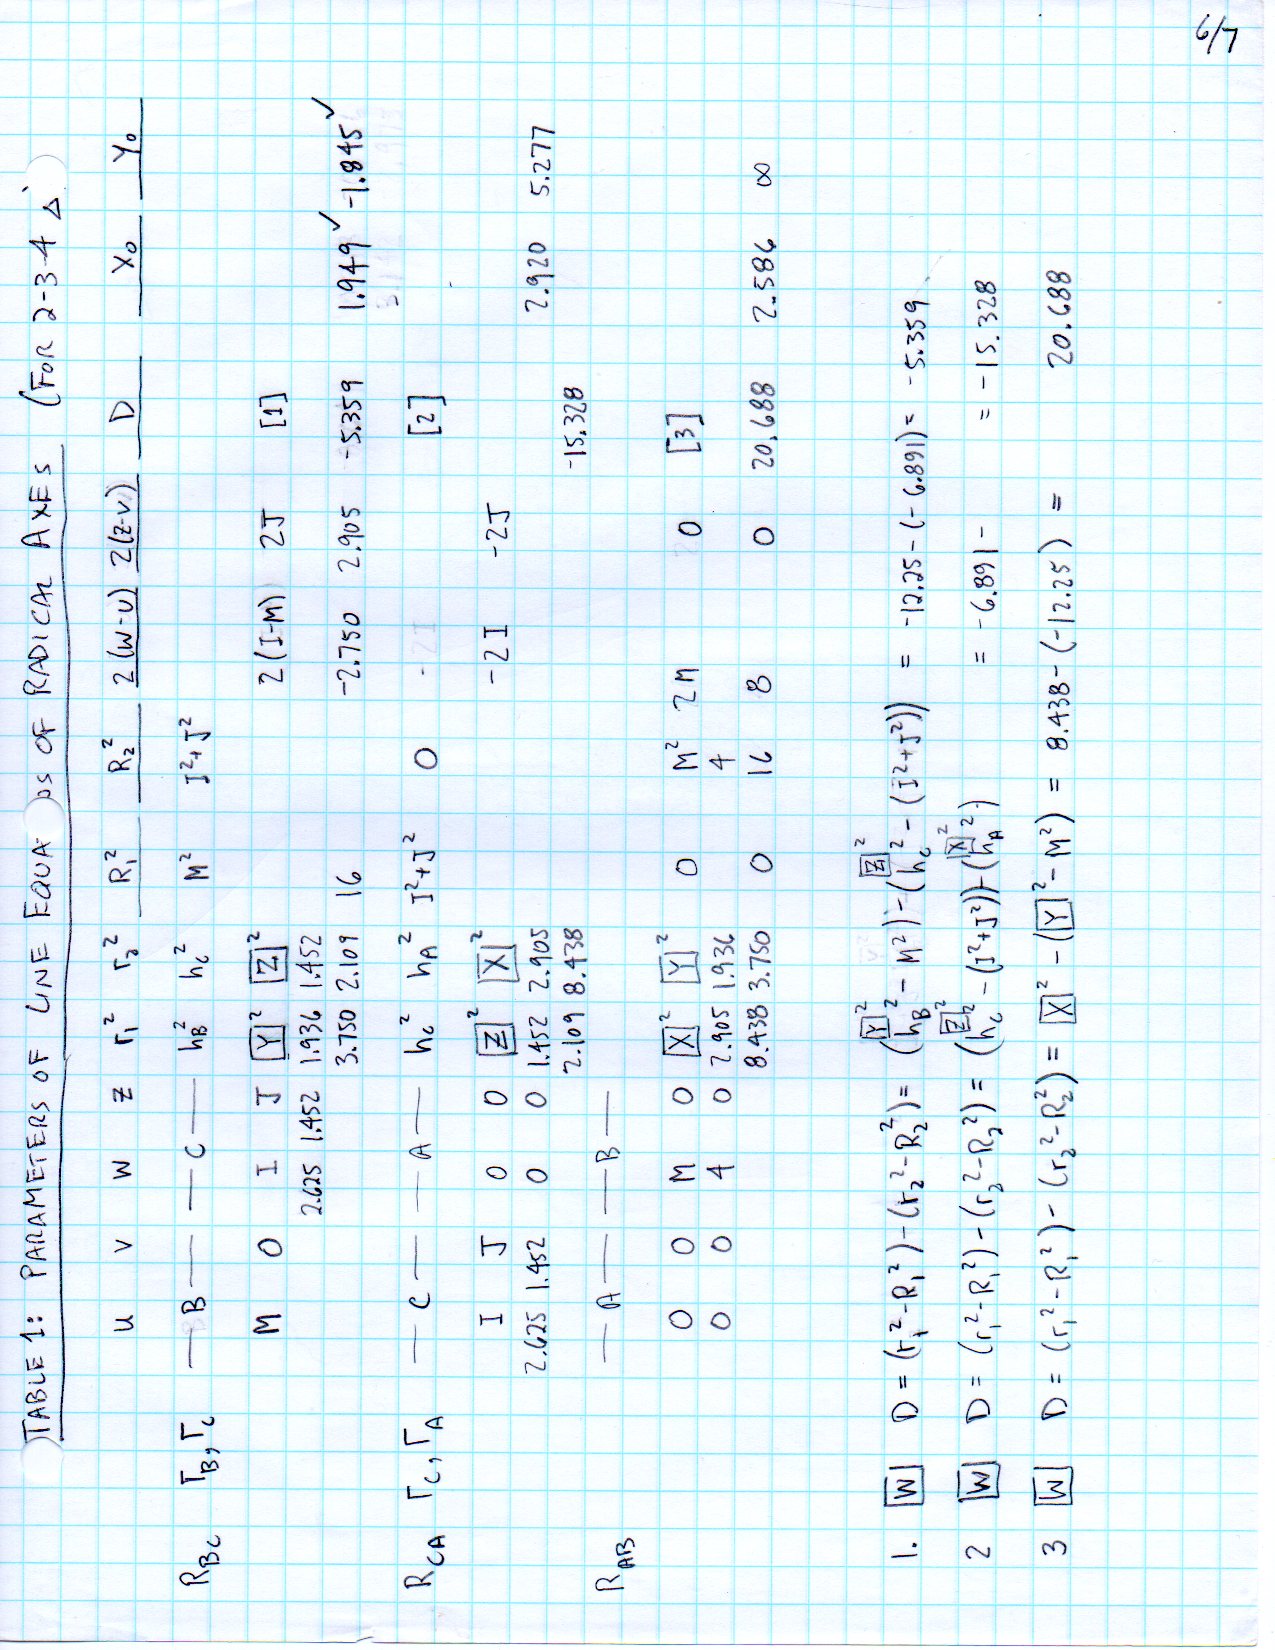 6/7
TABLE 1: PARAMETERS OF LINE EQUA OS OF RADICAL AXES (FOR 2-3-4 Δ)
u v w z r₁² r₂² R₁² R₂² 2(w-u) 2(z-v) D X₀ Y₀
R_BC Γ_B, Γ_C — B — — C — h_B² h_C² M² I²+J²
M 0 I J [Y]² [Z]² 2(I-M) 2J [1]
2.625 1.452 1.936 1.452
3.750 2.109 16 -2.750 2.905 -5.359 1.949 ✓ -1.845 ✓
R_CA Γ_C, Γ_A — C — — A — h_C² h_A² I²+J² 0 -2I [2]
I J 0 0 [Z]² [X]² -2I -2J
2.625 1.452 0 0 1.452 2.905 2.920 5.277
2.109 8.438 -15.328
R_AB — A — — B —
0 0 M 0 [X]² [Y]² 0 M² 2M 0 [3]
0 0 4 0 2.905 1.936 4
8.438 3.750 0 16 8 0 20.688 2.586 ∞
[Y]² [Z]²
1. [W] D = (r₁²-R₁²)-(r₂²-R₂²) = (h_B²-M²)-(h_C²-(I²+J²)) = -12.25-(-6.891) = -5.359
[Z]² [X]²
2 [W] D = (r₁²-R₁²)-(r₂²-R₂²) = (h_C²-(I²+J²))-(h_A²) = -6.891- = -15.328
3 [W] D = (r₁²-R₁²)-(r₂²-R₂²) = [X]²-([Y]²-M²) = 8.438-(-12.25) = 20.688